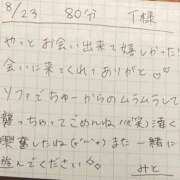 8/23 80分 T様
やっとお会い出来て嬉しかった!
会いに来てくれてありがと♡♡
ソファでちゅーからのムラムラして
襲っちゃってごめんね(笑)凄く
興奮したね(〃▽〃)また一緒に
遊んでください♡
みと